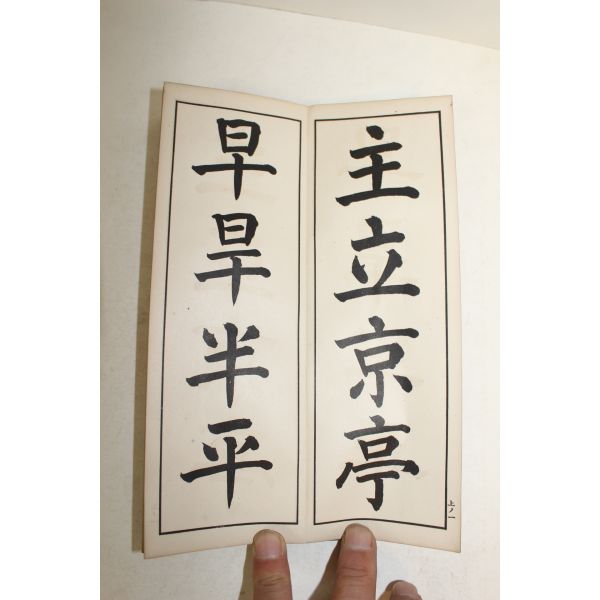 主立京亭
上ノ一
早旱半平